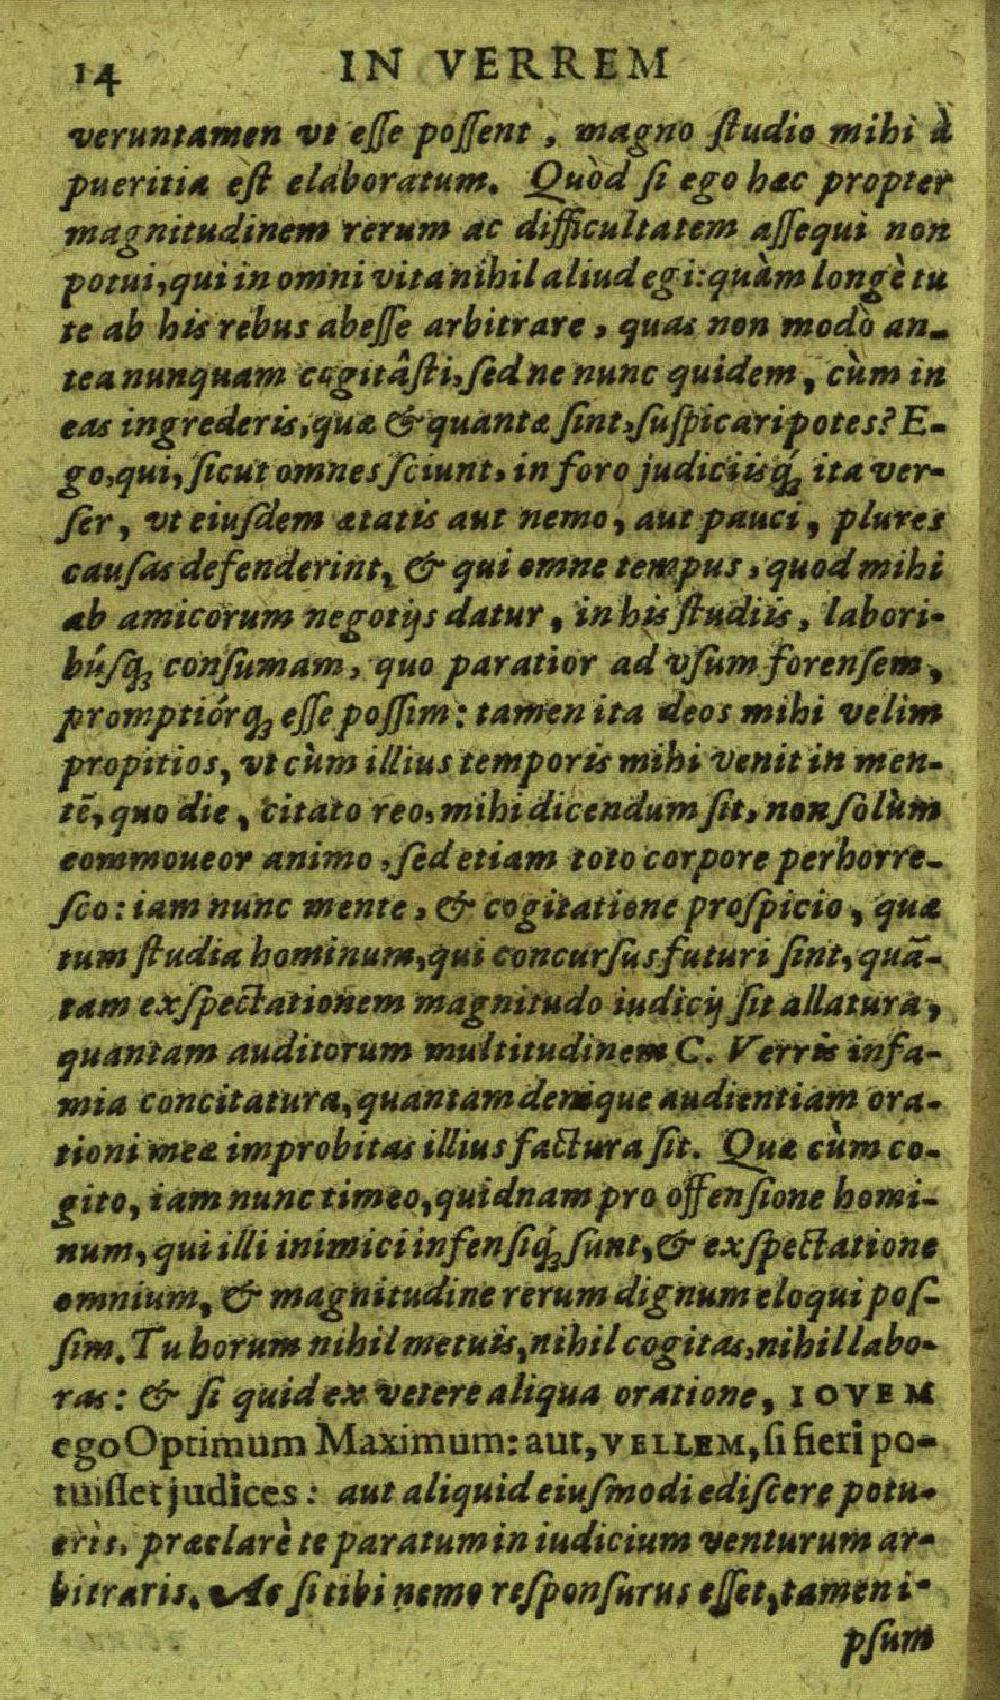 14 IN VERREM
veruntamen vt eſſe poſſent, magno ſtudio mihi à
pueritia eſt elaboratum. Quòd ſi ego hæc propter
magnitudinem rerum ac difficultatem aſſequi non
potui, qui in omni vita nihil aliud egi: quàm longè tu
te ab his rebus abeſſe arbitrare, quas non modò an-
tea nunquam cogitâſti, ſed ne nunc quidem, cùm in
eas ingrederis, quæ & quantæ ſint, ſuſpicari potes? E-
go, qui, ſicut omnes ſciunt, in foro judiciisq́; ita ver-
ſer, vt eiuſdem ætatis aut nemo, aut pauci, plures
cauſas defenderint, & qui omne tempus, quod mihi
ab amicorum negotijs datur, in his ſtudiis, labori-
búſq; conſumam, quo paratior ad vſum forenſem,
promptiórq; eſſe poſſim: tamen ita deos mihi velim
propitios, vt cùm illius temporis mihi venit in men-
tē, quo die, citato reo, mihi dicendum ſit, non ſolùm
commoueor animo, ſed etiam toto corpore perhorre-
ſco: iam nunc mente, & cogitatione proſpicio, quæ
tum ſtudia hominum, qui concurſus futuri ſint, quā-
tam exſpectationem magnitudo iudicij ſit allatura,
quantam auditorum multitudinem C. Verris infa-
mia concitatura, quantam denique audientiam ora-
tioni meæ improbitas illius factura ſit. Quæ cùm co-
gito, iam nunc timeo, quidnam pro offenſione homi-
num, qui illi inimici infenſiq́; ſunt, & exſpectatione
omnium, & magnitudine rerum dignum eloqui poſ-
ſim. Tu horum nihil metuis, nihil cogitas, nihil labo-
ras: & ſi quid ex vetere aliqua oratione, IOVEM
ego Optimum Maximum: aut, VELLEM, ſi fieri po-
tuiſlet judices: aut aliquid eiuſmodi ediſcere potu-
eris, præclarè te paratum in iudicium venturum ar-
bitraris. Ac ſi tibi nemo reſponſurus eſſet, tamen i-
pſum